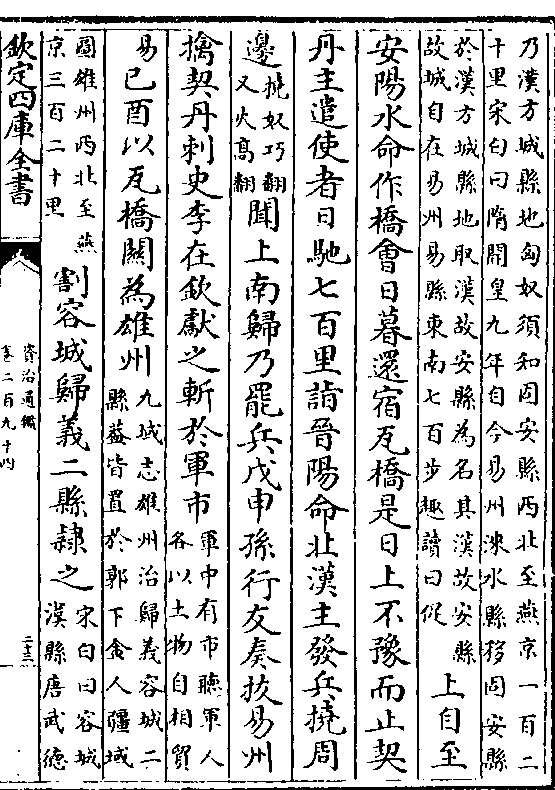 乃漢方城縣地匈奴須知固安縣西北至燕京一百二
十里宋白曰隋開皇九年自今易州淶水縣移固安縣
於漢方城縣地取漢故安縣為名其漢故安縣
故城自在易州易縣東南七百步趣讀曰促
上自至
安陽水命作橋會日暮還宿瓦橋是日上不豫而止契
丹主遣使者日馳七百里詣晉陽命北漢主發兵撓周
邊
撓奴巧翻
又火高翻
聞上南歸乃罷兵戊申孫行友奏拔易州
擒契丹刺史李在欽獻之斬於軍市
軍中有市聽軍人
各以土物自相貿
易
己酉以瓦橋關為雄州
九域志雄州治歸義容城二
縣葢皆置於郭下金人疆域
圖雄州西北至燕
京三百二十里
割容城歸義二縣隸之
宋白曰容城
漢縣唐武德
欽定四庫全書
資治通鑑
卷二百九十四
二十三